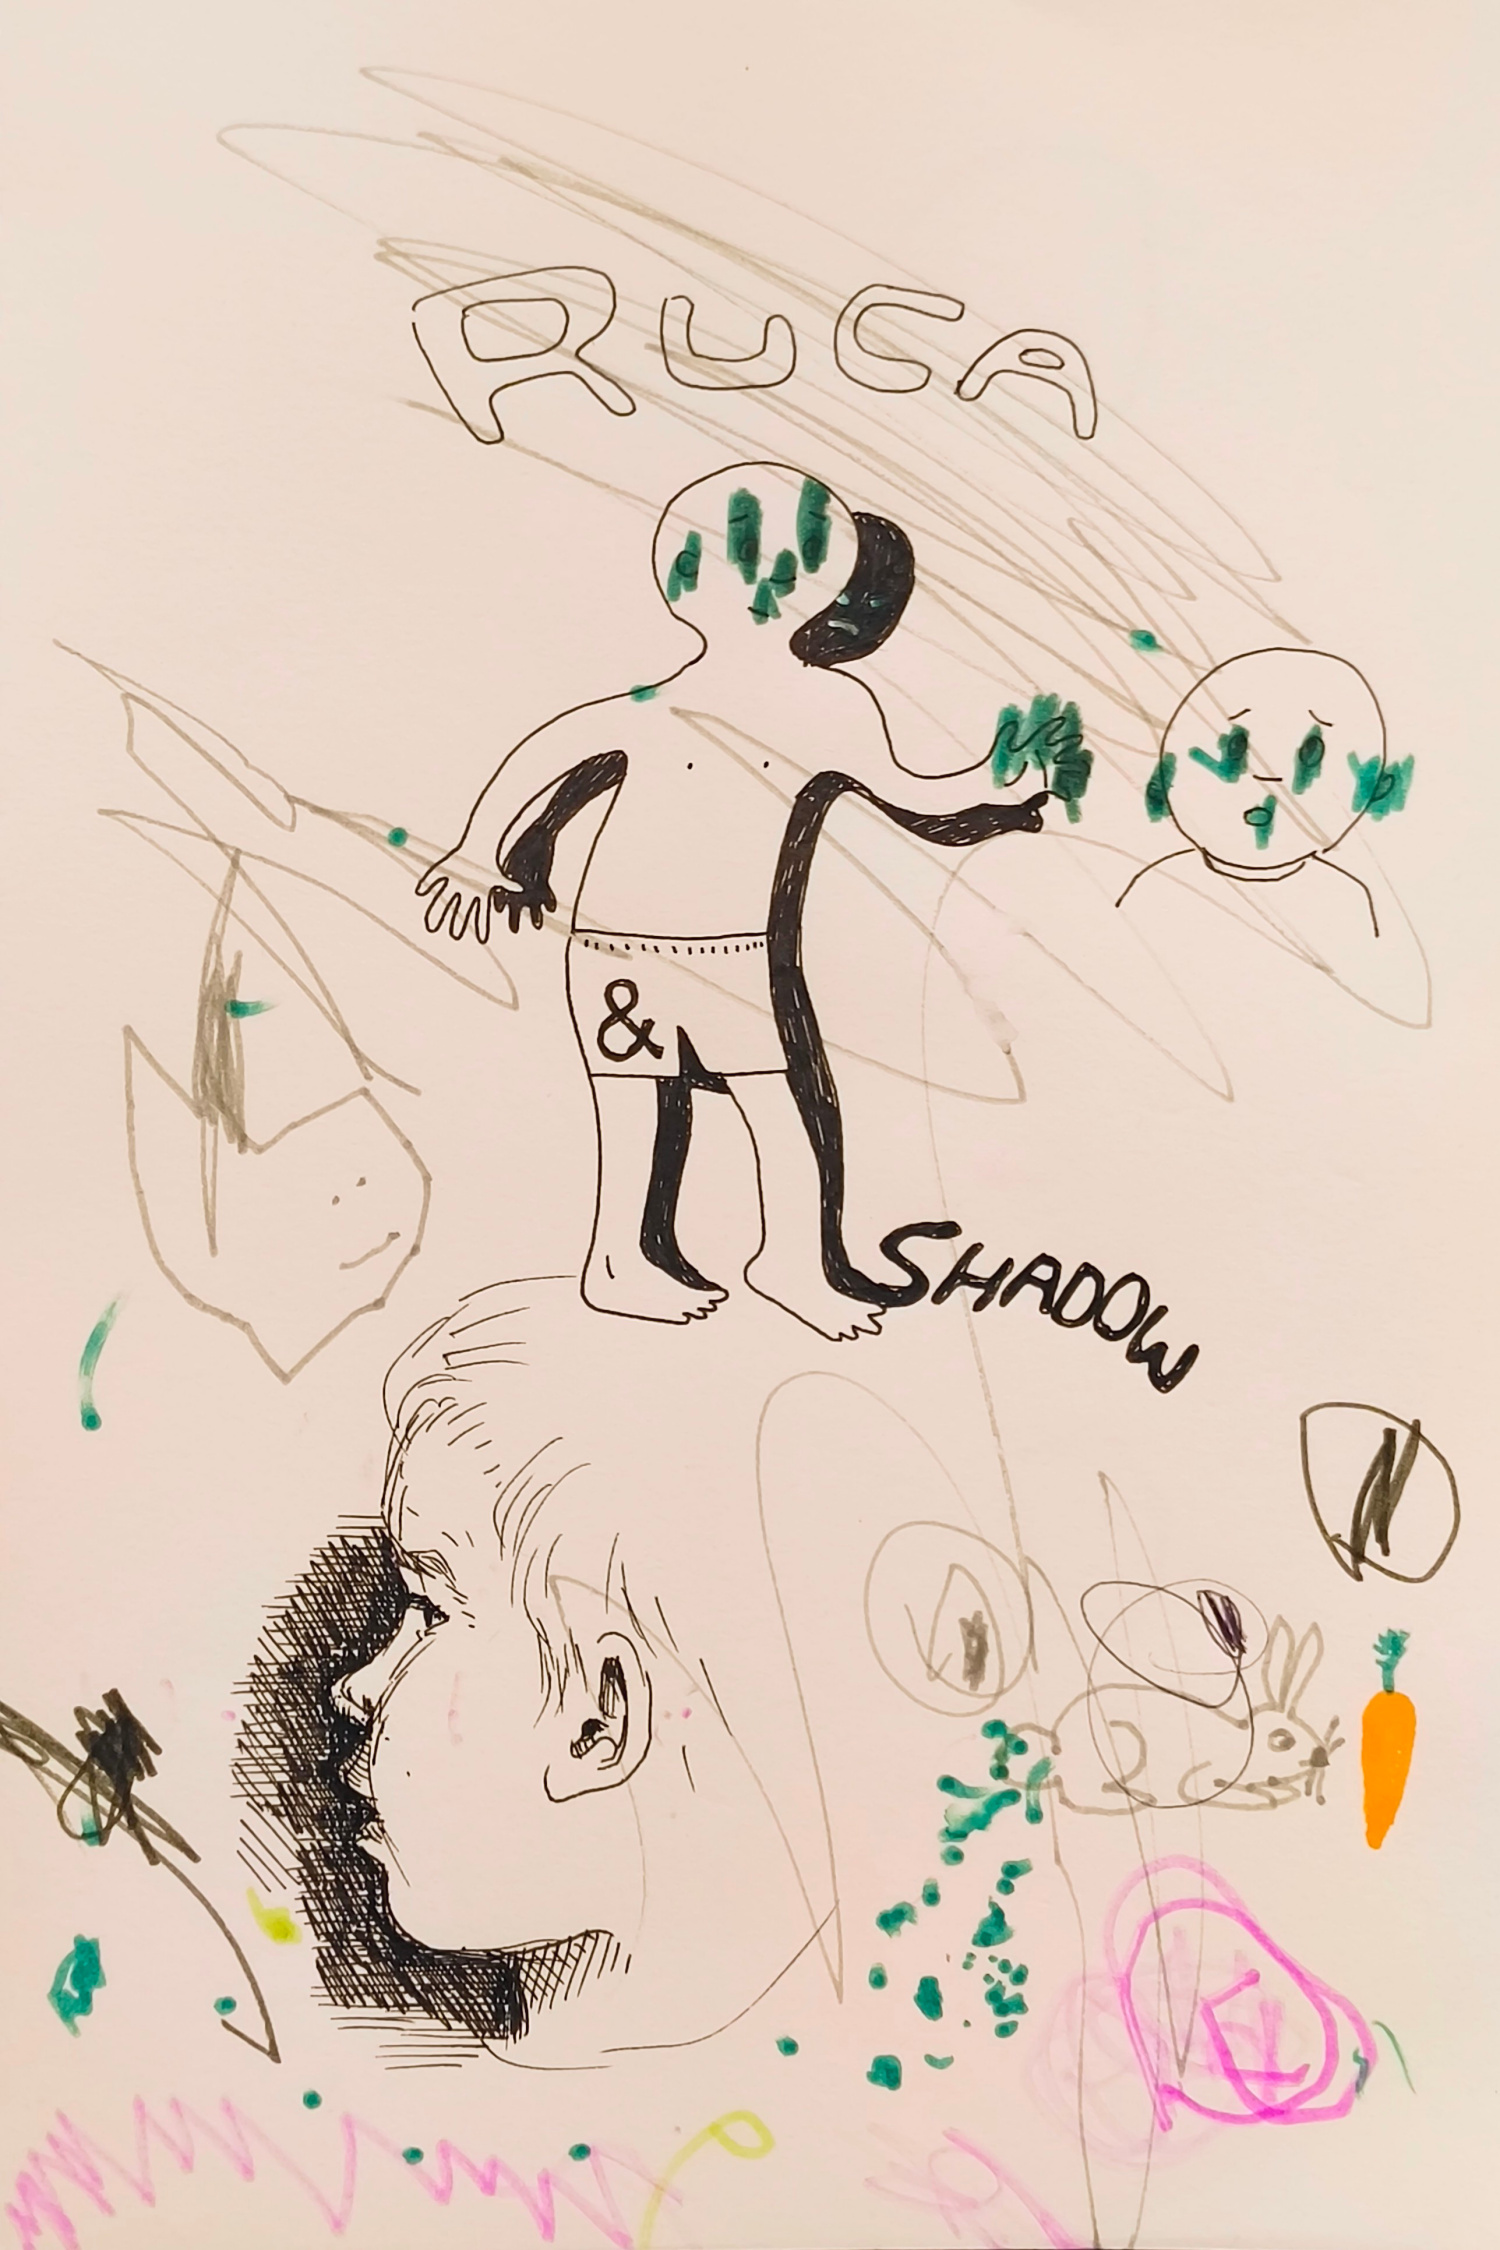 RUCA
&
SHADOW